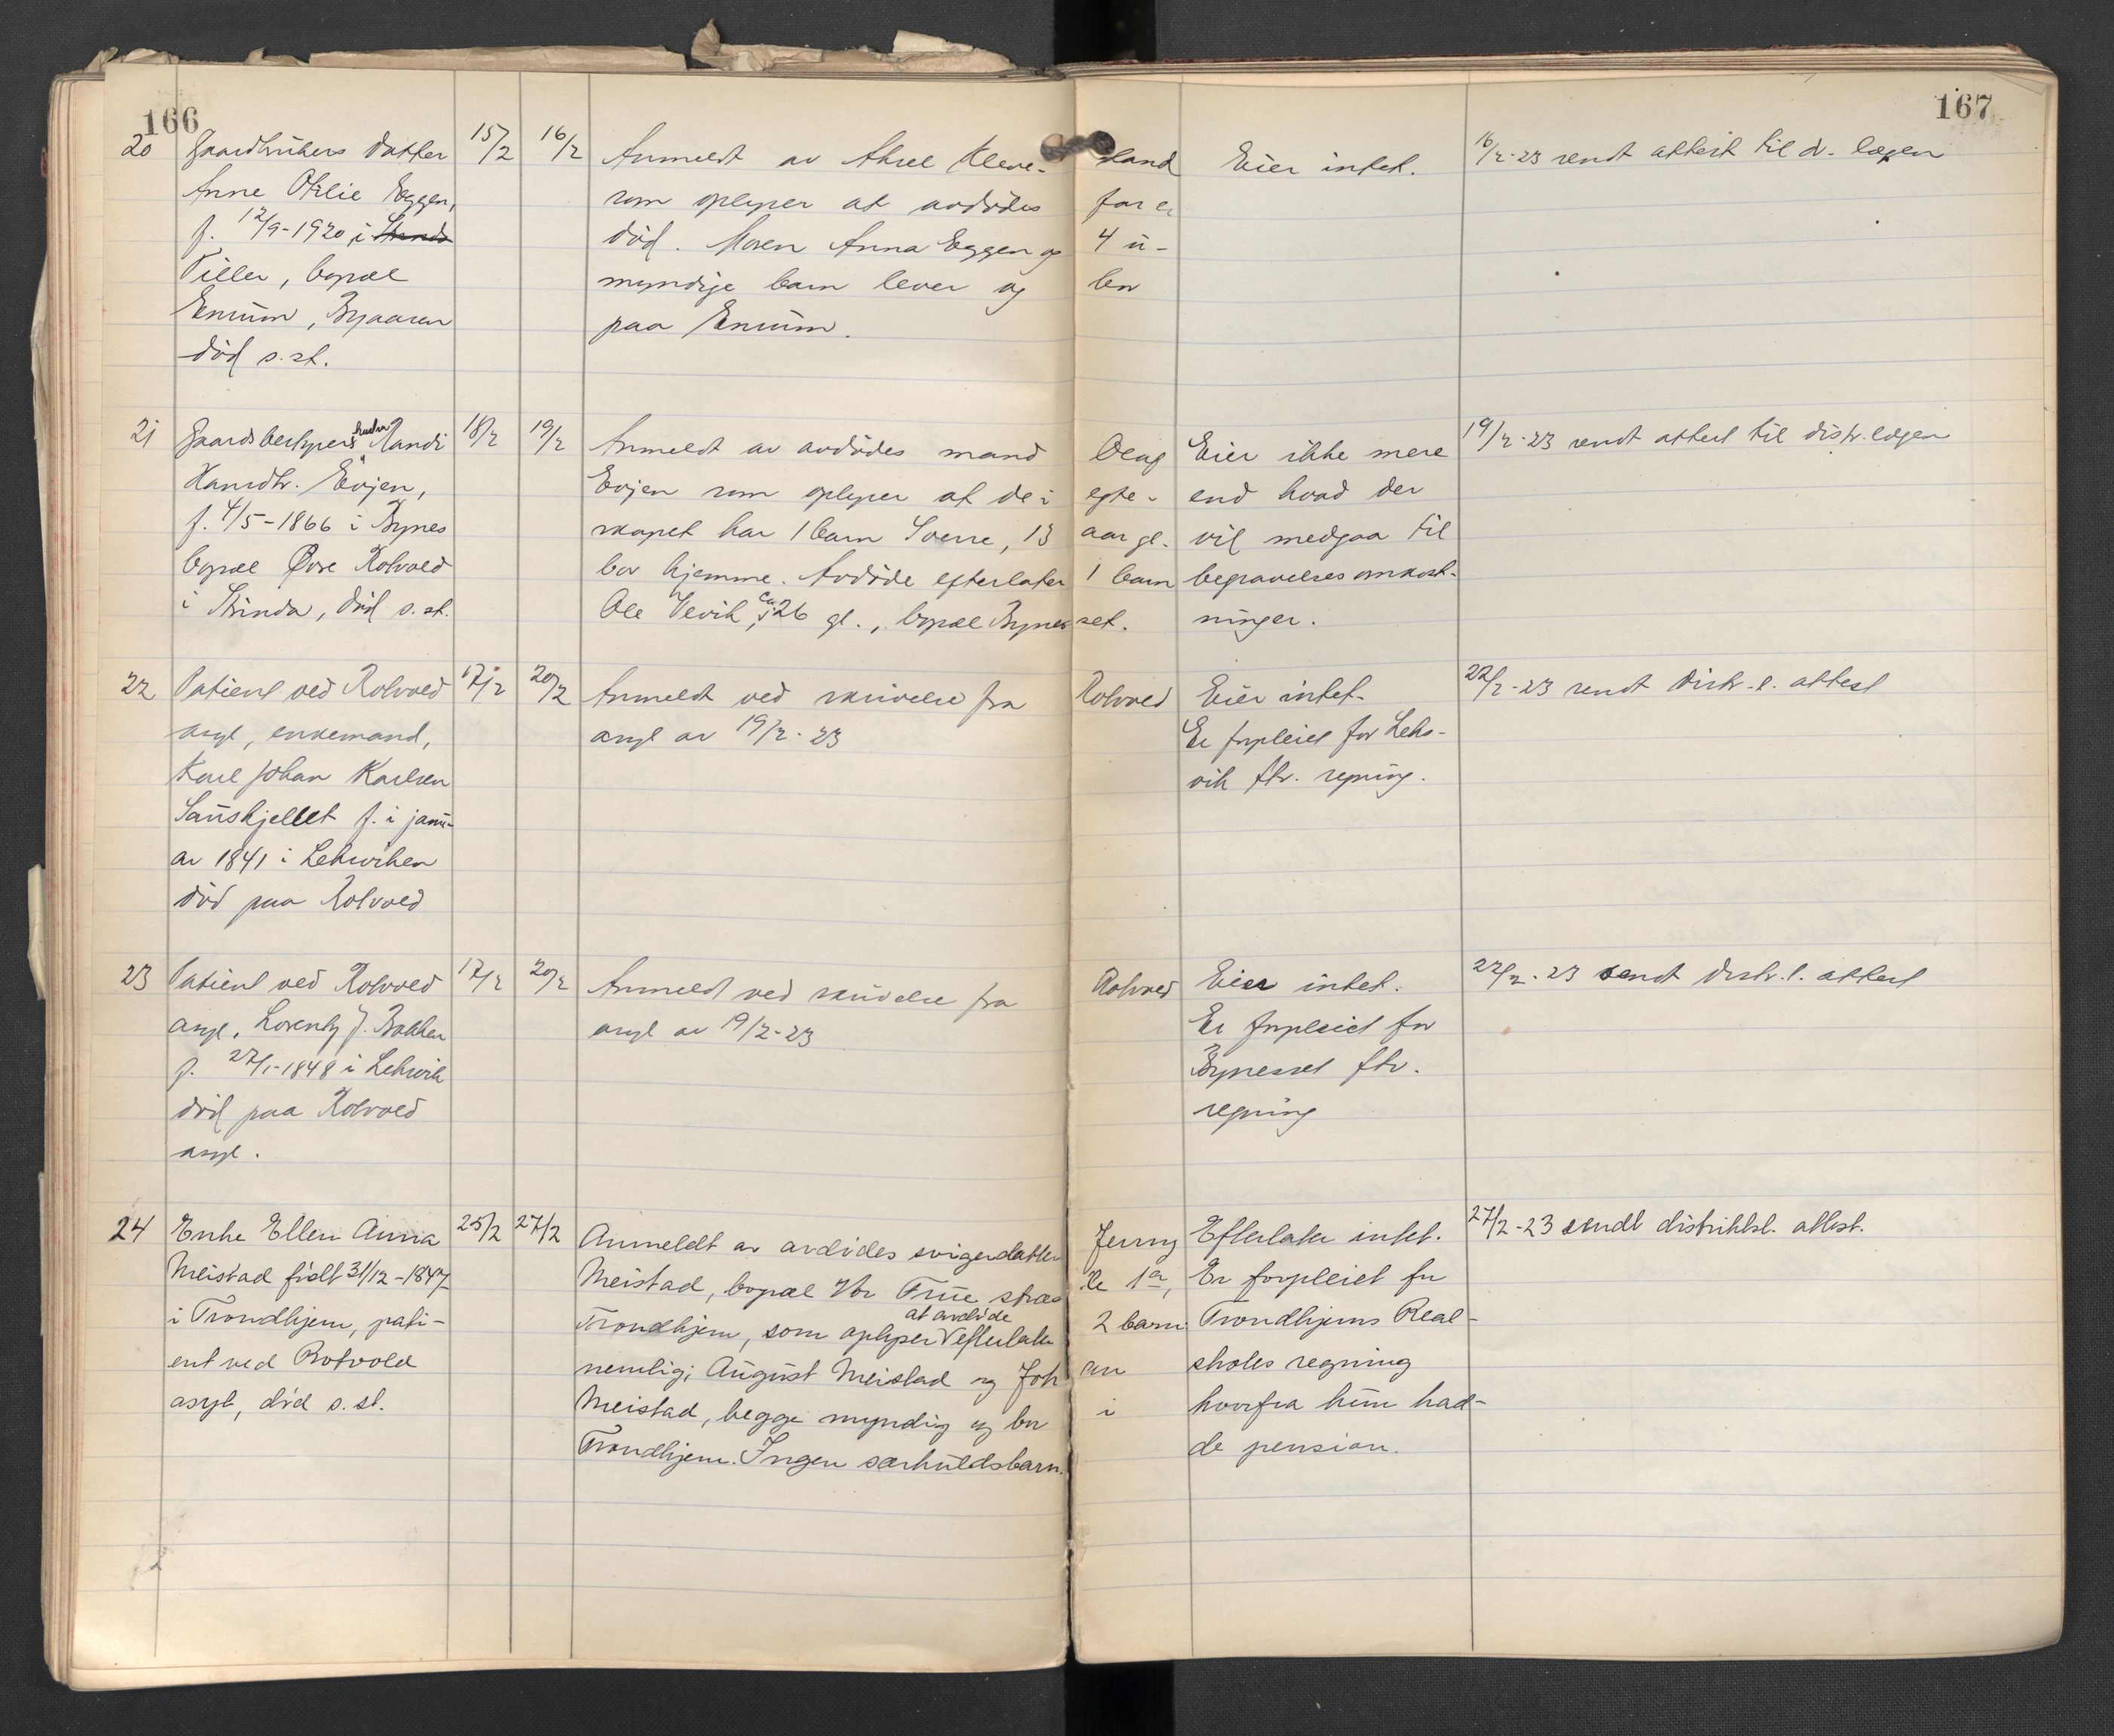 166
167
20 Gaardbrukers datter 15/2 16/2 Anmeldt av Aksel Kleve- land Eier intet. 16/2-23 sendt attest til d. lægen
Anne Otelie Eggen, som oplyser at avdødes far er
f. 12/9-1920 i Strinda død. Moren Anna Eggen og 4 u-
Tiller, bopæl myndige barn lever og bor
Enrum, Byaasen paa Enrum.
død s. st.
21 Gaardsbestyrers hustru Randi 18/2 19/2 Anmeldt av avdødes mand Olaug Eier ikke mere 19/2-23 sendt attest til distr.lægen
Evjen, Evjen som oplyser at de i egte- end hvad der
f. 4/5-1866 i Bynes skapet har 1 barn Sverre, 13 aar gl. vil medgaa til
bopæl Øvre Rotvold bor hjemme. Avdøde efterlater 1 barn begravelsesomkost-
i Strinda, død s. st. Ole Vevik, ca 26 gl., bopæl Bynesset. ninger.
22 Patient ved Rotvold 17/2 20/2 Anmeldt ved skrivelse fra Rotvold Eier intet. 22/2-23 sendt distr.l. attest
asyl, enkemand, asyl av 19/2-23 Er forpleiet for Leks-
Karl Johan Karlsen vik ftv. regning.
Sauskjellet f. i janu-
ar 1841 i Leksviken
død paa Rotvold
23 Patient ved Rotvold 17/2 20/2 Anmeldt ved skrivelse fra Rotvold Eier intet. 22/2-23 sendt distr.l. attest
asyl, Lorentz J. Bakken asyl av 19/2-23 Er forpleiet for
f. 27/1-1848 i Leksvik Bynesset ftv.
død paa Rotvold regning
asyl.
24 Enke Ellen Anna 25/2 27/2 Anmeldt av avdødes svigerdatter Jenny Efterlater intet. 27/2-23 sendt distriktsl. attest.
Meistad født 31/12-1847 Meistad, bopæl Vor Frue stræde 1a, Er forpleiet for
i Trondhjem, pati- Trondhjem, som oplyser at avdøde efterlater 2 barn Trondhjems Real-
ent ved Rotvold nemlig: August Meistad og Johan skoles regning
asyl, død s. st. Meistad, begge myndig og bor i hvorfra hun had-
Trondhjem. Ingen særkuldsbarn. de pension.